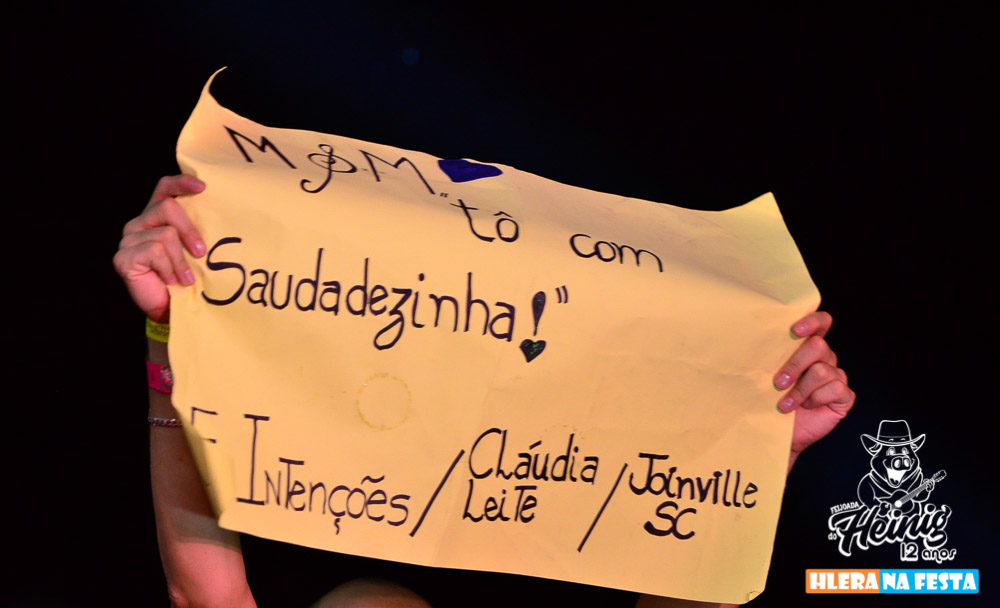 M & M "tô com
Saudadezinha!"
E Intenções / Cláudia Leite / Joinville SC
FEIJOADA
do Heinig
12 anos
HLERA NA FESTA